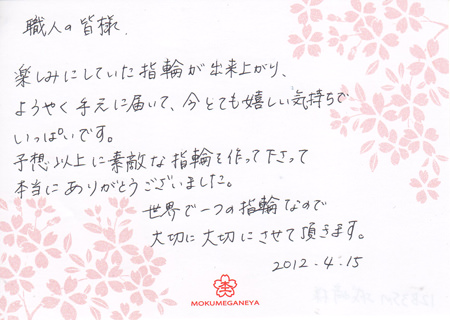 職人の皆様.
楽しみにしていた指輪が出来上がり、
ようやく手元に届いて、今とても嬉しい気持ちで
いっぱいです。
予想以上に素敵な指輪を作って下さって
本当にありがとうございました。
世界で一つの指輪なので
大切に大切にさせて頂きます。
2012.4.15
MOKUMEGANEYA